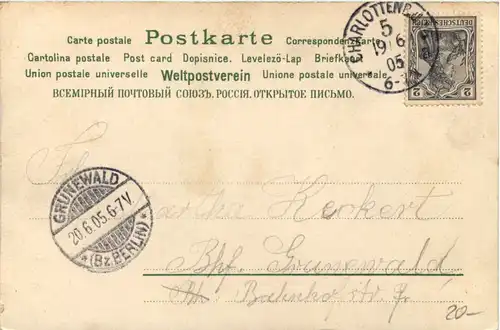 Carte postale Postkarte Correspondenzkarte
Cartolina postale Post card Dopisnice. Levelezö-Lap Briefkaart
Union postale universelle Weltpostverein Unione postale universale
ВСЕМІРНЫЙ ПОЧТОВЫЙ СОЮЗЪ. РОССІЯ. ОТКРЫТОЕ ПИСЬМО.
CHARLOTTENBURG
5
19 6
05
6-7
DEUTSCHES REICH
2 2
GRUNEWALD
20.6.05.6-7V.
*(Bz. BERLIN)*
Martha Herkert
Bhf. Grunewald
Bahnhofstr. 9
20-